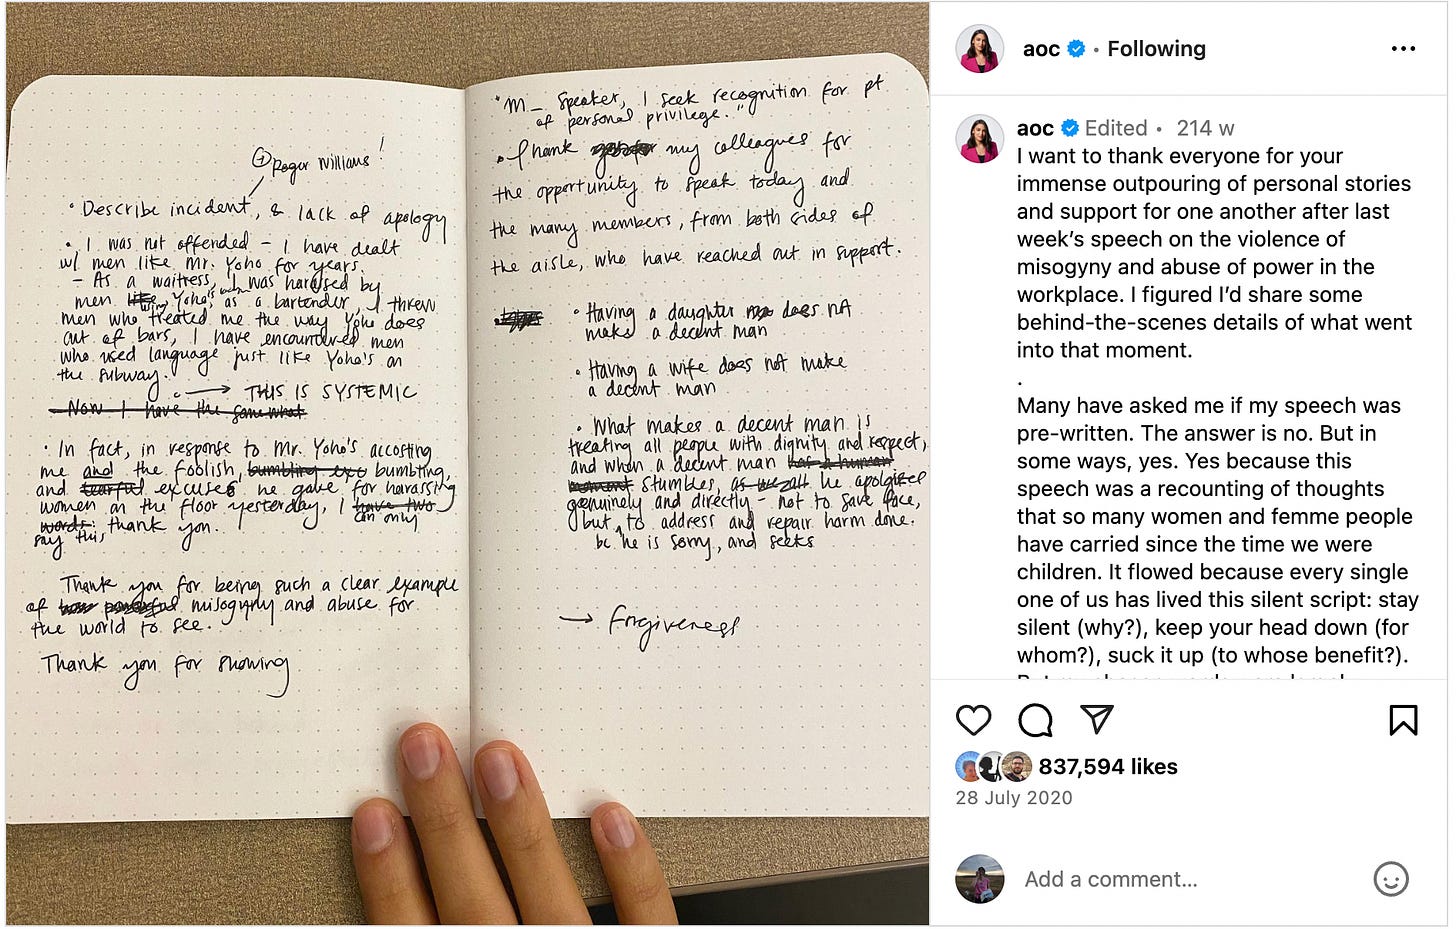 + Roger Williams!
• Describe incident, & lack of apology
• I was not offended – I have dealt
w/ men like Mr. Yoho for years.
– As a waitress, I was harassed by
men like Yoho, as a bartender, I threw
men who treated me the way Yoho does
out of bars, I have encountered men
who used language just like Yoho's on
the subway.
→ THIS IS SYSTEMIC
Now I have the somewhat
• In fact, in response to Mr. Yoho's accosting
me and the foolish, bumbling exc bumbling,
and tearful excuses he gave for harassing
women on the floor yesterday, I have two
can only
words:
say this, thank you.
Thank you for being such a clear example
of how powerful misogyny and abuse for
the world to see.
Thank you for showing
"M_ Speaker, I seek recognition for pt
of personal privilege."
• Thank my colleagues for
the opportunity to speak today and
the many members, from both sides of
the aisle, who have reached out in support.
• Having a daughter does not
make a decent man
• Having a wife does not make
a decent man
• What makes a decent man is
treating all people with dignity and respect,
and when a decent man has a human
moment stumbles, as we all he apologized
genuinely and directly – not to save face,
but, to address and repair harm done.
bc he is sorry, and seeks
→ Forgiveness
aoc • Following
aoc Edited • 214 w
I want to thank everyone for your
immense outpouring of personal stories
and support for one another after last
week's speech on the violence of
misogyny and abuse of power in the
workplace. I figured I'd share some
behind-the-scenes details of what went
into that moment.
.
Many have asked me if my speech was
pre-written. The answer is no. But in
some ways, yes. Yes because this
speech was a recounting of thoughts
that so many women and femme people
have carried since the time we were
children. It flowed because every single
one of us has lived this silent script: stay
silent (why?), keep your head down (for
whom?), suck it up (to whose benefit?).
837,594 likes
28 July 2020
Add a comment...